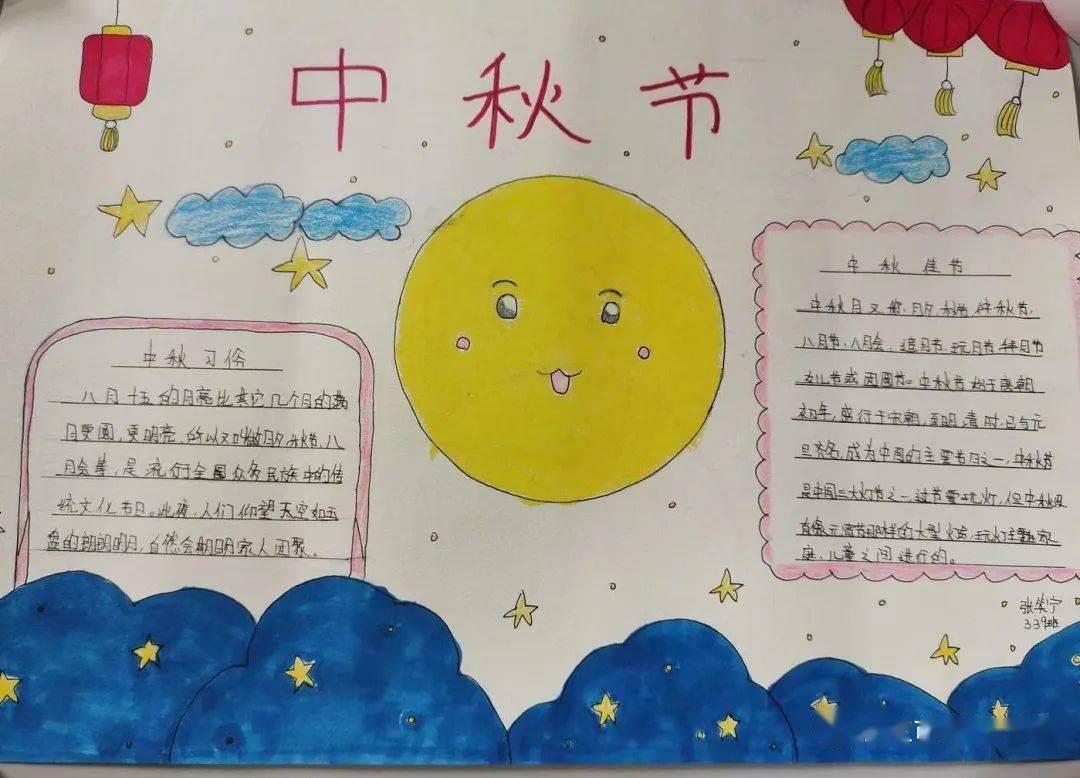 中秋节
中秋习俗
八月十五的月亮比其它几个月的满
月更圆,更明亮,所以又叫做月夕,秋节,八
月会等,是流行于全国众多民族中的传
统文化节日。此夜,人们仰望天空如玉
盘的朗朗明月,自然会期盼家人团聚。
中秋佳节
中秋月又称,月夕,秋节,仲秋节,
八月节,八月会,追月节,玩月节,拜月节
女儿节或团圆节。中秋节始于唐朝
初年,盛行于宋朝,至明,清时,已与元
旦齐名,成为中国的主要节日之一,中秋节
是中国三大灯节之一,过节要玩灯,但中秋没
有像元宵节那样的大型灯会,玩灯主要在家
庭、儿童之间进行的。
张笑宁
339班